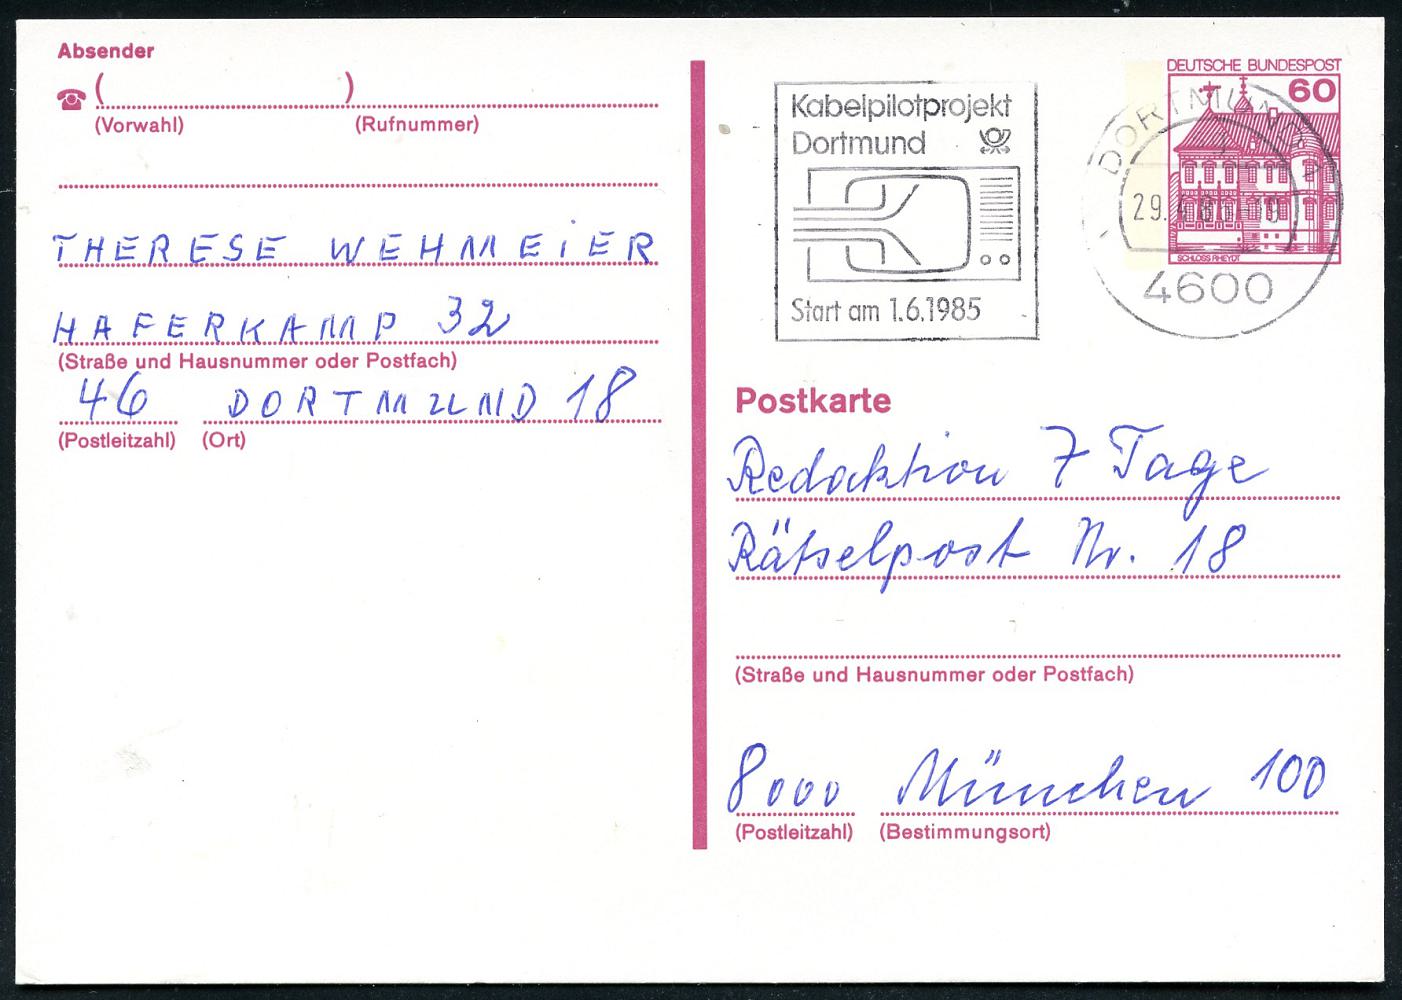 Absender
( )
(Vorwahl) (Rufnummer)
THERESE WEHMEIER
HAFERKAMP 32
(Straße und Hausnummer oder Postfach)
46 DORTMUND 18
(Postleitzahl) (Ort)
Kabelpilotprojekt
Dortmund
Start am 1.6.1985
DORTMUND
29.4.85
4600
DEUTSCHE BUNDESPOST
60
SCHLOSS RHEYDT
Postkarte
Redaktion 7 Tage
Rätselpost Nr. 18
(Straße und Hausnummer oder Postfach)
8000 München 100
(Postleitzahl) (Bestimmungsort)